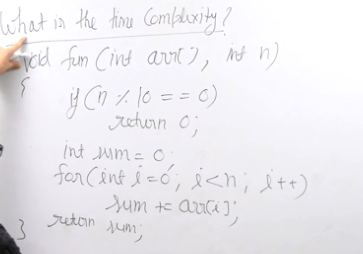 What is the time Complexity?
void fun (int arr[], int n)
{
if (n % 10 == 0)
return 0;
int sum = 0;
for (int i=0; i<n; i++)
sum += arr[i];
return sum;
}